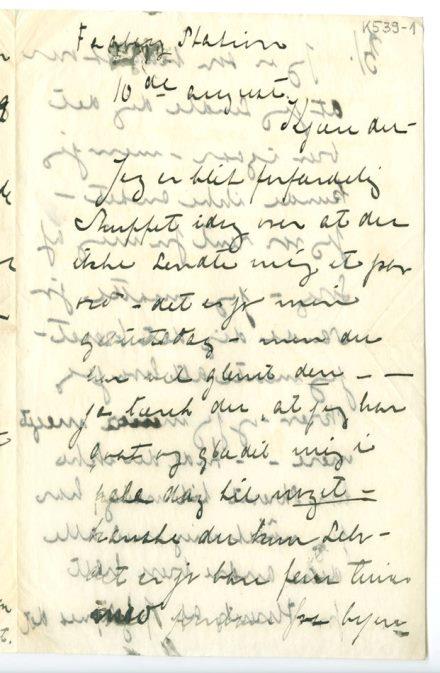 K539-1
Station
10 de august.
Kjære der -
Jeg er blit forfærdelig
skuffet idag over at der
ikke sendte mig et par
ord - det er jo min
gebursdag - men der
har vel glemt den -
ja tænk der, at jeg har
gåat og glædet mig i
hele dag til noget -
kanske der kom selv -
det er jo bare fem timer
fra byen